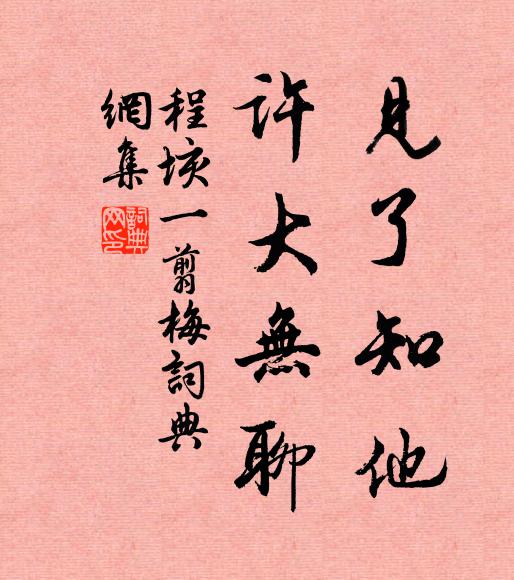 見了知他
許大無聊
程垓一翦梅詞典
網集
詞典網印